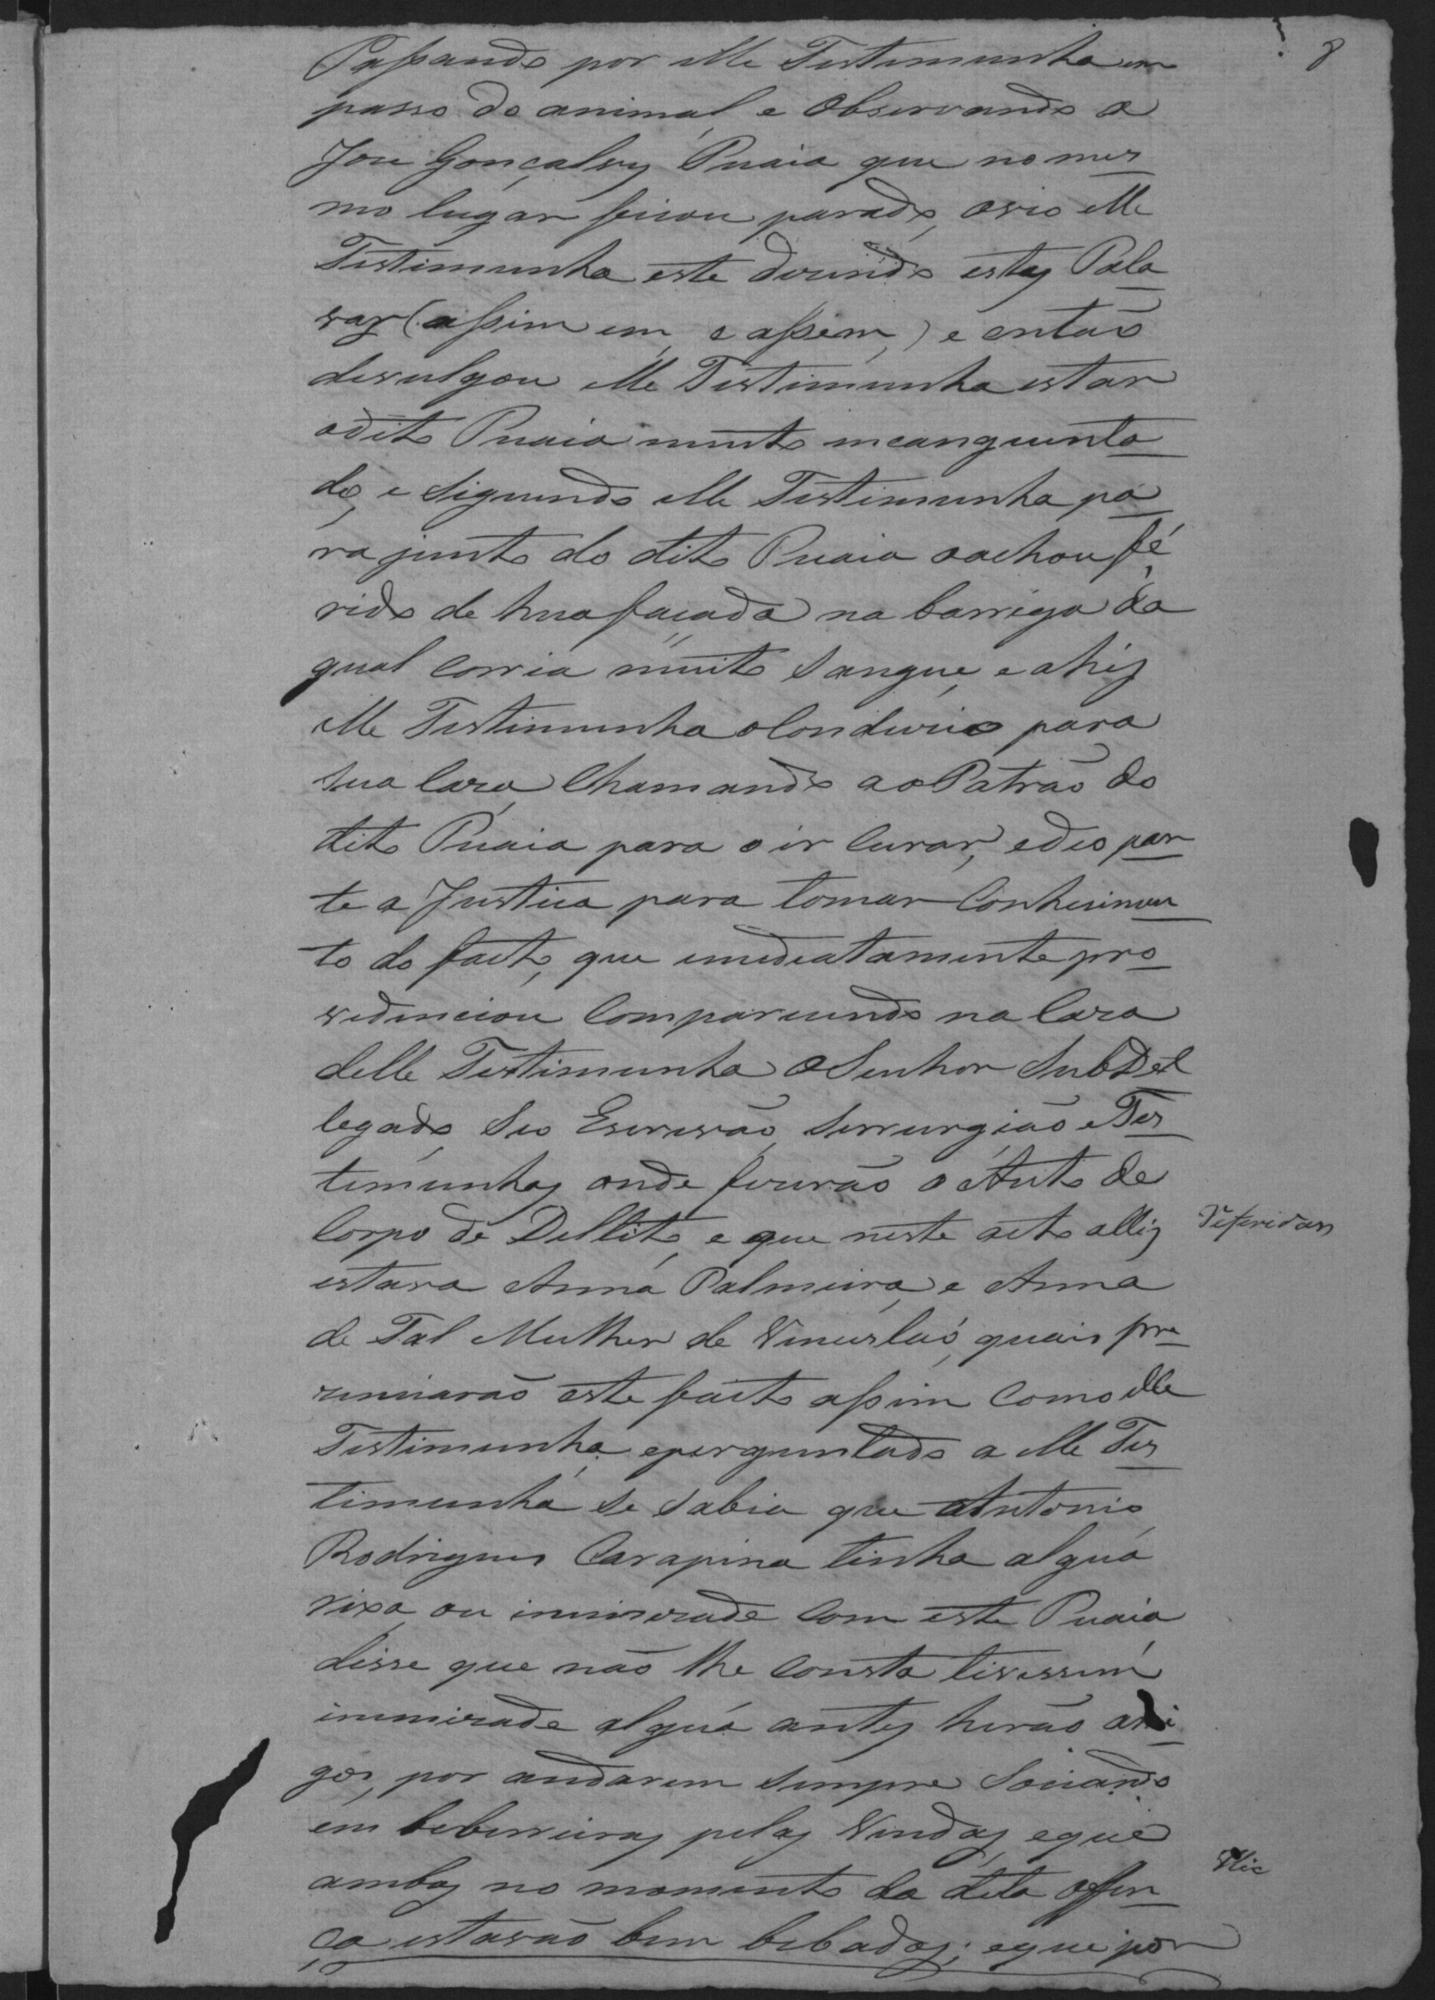 8
Passando por elle Testimunha em
passo do animal e Observando a
Joze Gonçalves Puaia que no mes
mo lugar ficou parado, ovio elle
Testimunha este dizindo estas Pala
vas (assim em, e assim,) e então
devulgou elle Testimunha estar
o dito Puaia muito incanguenta
do, e siguindo elle Testimunha pa
ra junto do dito Puaia o achou fe
rido de hua facada na barriga da
qual corria muito Sangue, e ahi
elle Testimunha o Condusio para
sua Caza, Chamando ao Patrão do
dito Puaia para o ir Curar, e deo par
te a Justica para tomar Conhesimen
to do facto, que emediatamente pro
videnciou Comparecendo na Caza
delle Testimunha o Senhor SubDel
legado, Seo Escrivão, Serrurgião e Tes
timunhas onde fizirão o Auto de
Corpo de Dellito, e que neste acto allis
estava Anna Palmeira, e Anna
de Tal Mulher de Vinceslaó, quais pre
zenciarão este facto assim Como elle
Testimunha, e perguntado a elle Tes
timunha se sabia que Antonio
Rodrigues Carapina tinha algua
rixa ou inimizade Com este Puaia
disse que não lhe Consta tivessem
inimizade algua antes herão ami
gos, por andarem sempre Sociando
em beberreiras pelas Vendas, e que
ambos no momento da dita offen
ça estavão bem bebados; e que por